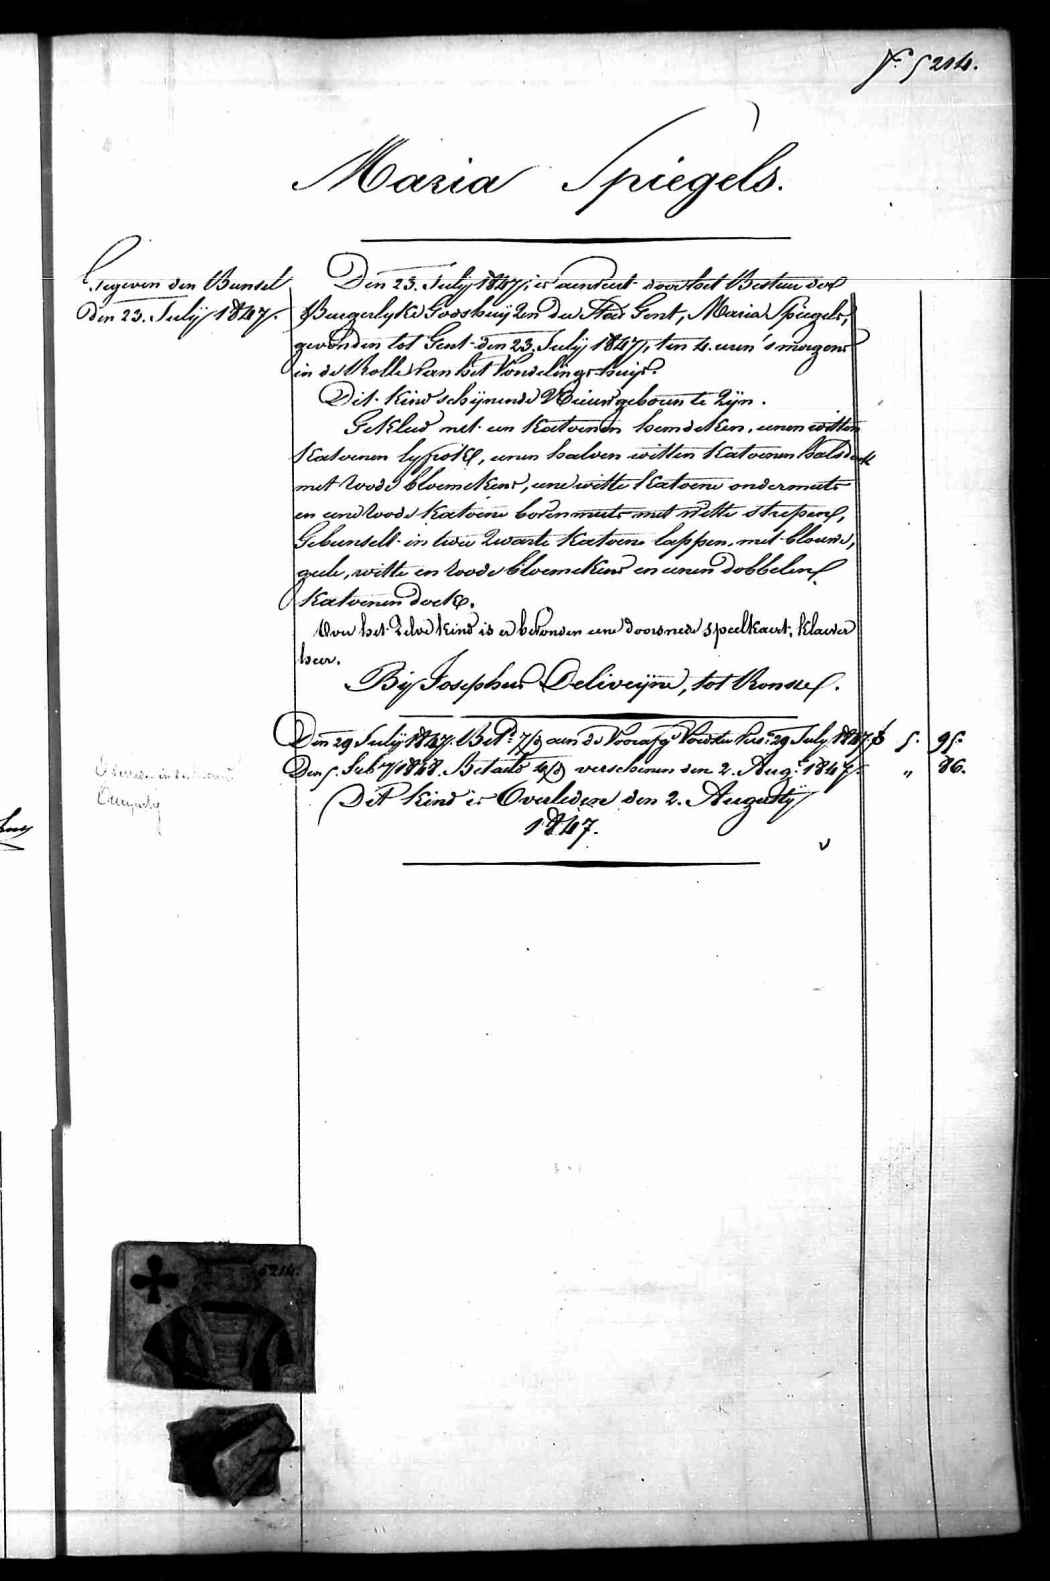 Nº 5214.
Maria Spiegels.
Gegeven den Bunsel
den 23. Julij 1847.
Den 23. Julij 1847, is aenveert door het Bestuer der
Burgerlyke Godshuijzen der Stad Gent, Maria Spiegels,
gevonden tot Gent den 23. Julij 1847, ten 4. uren 's morgens
in de Rolle van het Vondelings huijs.
Dit kind schijnende Nieuwgeboren te zijn.
Gekleed met een katoenen hemdeken, eenen witten
katoenen lyfrok, eenen halven witten katoenen halsdoek
met roode bloemekens, eene witte katoene ondermuts
en eene roode katoene bovenmuts met witte strepen,
Gebunselt in twee zwarte katoene lappen, met blouwe,
geele, witte en roode bloemekens en eenen dobbelen
katoenen doek.
Voor het zelve kind is er bevonden eene doorsnede speelkaert, klaever
heer.
Bij Josephus Deliveijne, tot Ronsse.
Den 29 Julij 1847. Betd. aen de Voorafge Voedster 29 July 1847 f 5. 95.
Den 5. Feby 1848. Betaeld verschenen den 2. Augt 1847. " 86.
Dit kind is Overleden den 2. Augustij
1847.
5214.